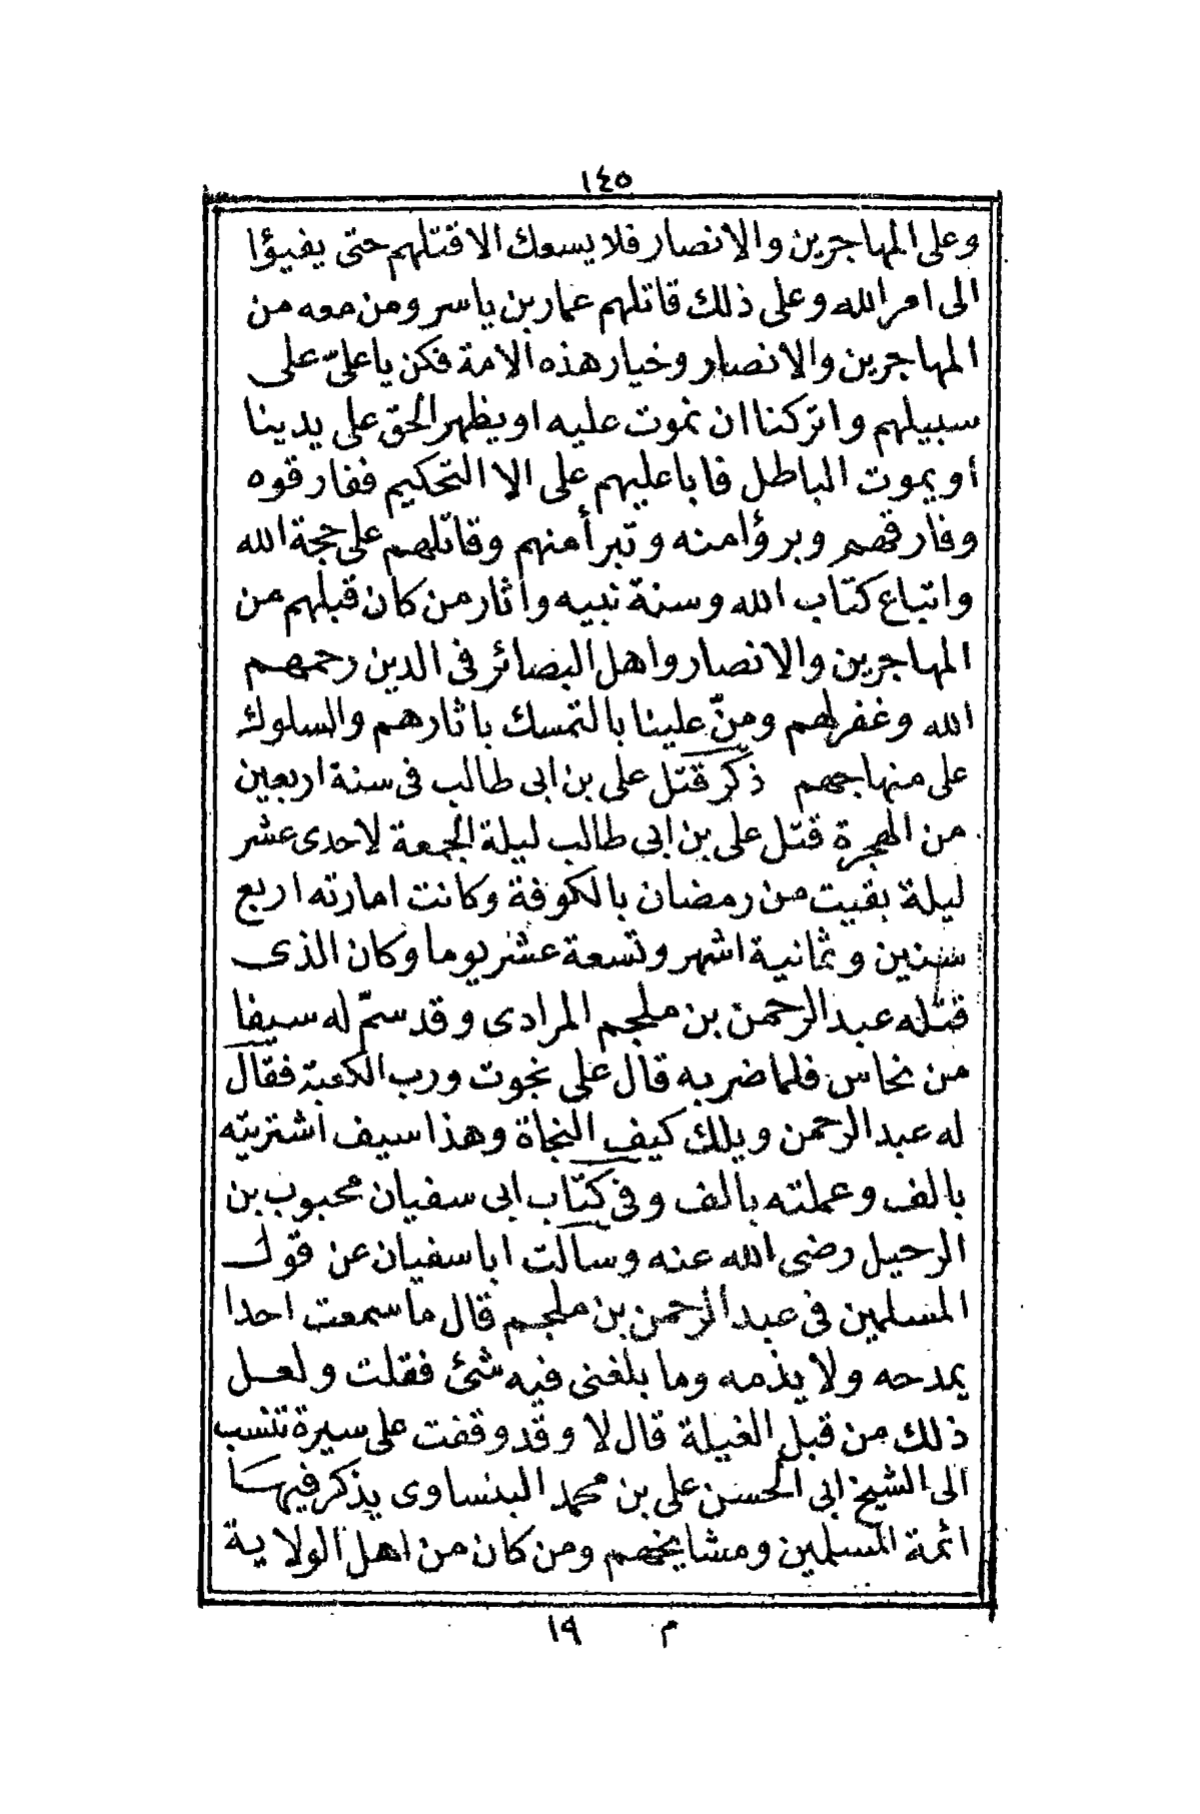 ١٤٥
وعلى المهاجرين والانصار فلا يسعك الا قتلهم حتى يفيؤا
الى امر الله وعلى ذلك قاتلهم عمار بن ياسر ومن معه من
المهاجرين والانصار وخيار هذه الامة فكن يا علىّ على
سبيلهم واتركنا ان نموت عليه او يظهر الحق على يدينا
او يموت الباطل فابا عليهم على الا التحكيم ففارقوه
وفارقهم وبرؤا منه وتبرأ منهم وقاتلهم على حجة الله
واتباع كتاب الله وسنة نبيه وآثار من كان قبلهم من
المهاجرين والانصار واهل البصائر فى الدين رحمهم
الله وغفر لهم ومنّ علينا بالتمسك باثارهم والسلوك
على منهاجهم ذكر قتل على بن ابى طالب فى سنة اربعين
من الهجرة قتل على بن ابى طالب ليلة الجمعة لاحدى عشر
ليلة بقيت من رمضان بالكوفة وكانت امارته اربع
سنين وثمانية اشهر وتسعة عشر يوما وكان الذى
قتله عبد الرحمن بن ملجم المرادى وقد سمّ له سيفا
من نحاس فلما ضربه قال على نجوت ورب الكعبة فقال
له عبد الرحمن ويلك كيف النجاة وهذا سيف اشتريته
بالف وعملته بالف وفى كتاب ابى سفيان محبوب بن
الرحيل رضى الله عنه وسألت ابا سفيان عن قول
المسلمين فى عبد الرحمن بن ملجم قال ما سمعت احدا
يمدحه ولا يذمه وما بلغنى فيه شئ فقلت ولعل
ذلك من قبل الغيلة قال لا وقد وقفت على سيرة تنسب
الى الشيخ ابى الحسن على بن محمد البنساوى يذكر فيها
ائمة المسلمين ومشايخهم ومن كان من اهل الولاية
م ١٩